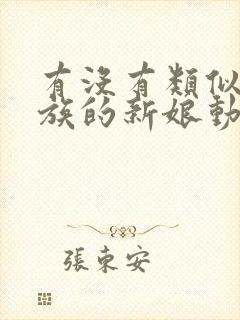 有没有類似
族的新娘動
張東安